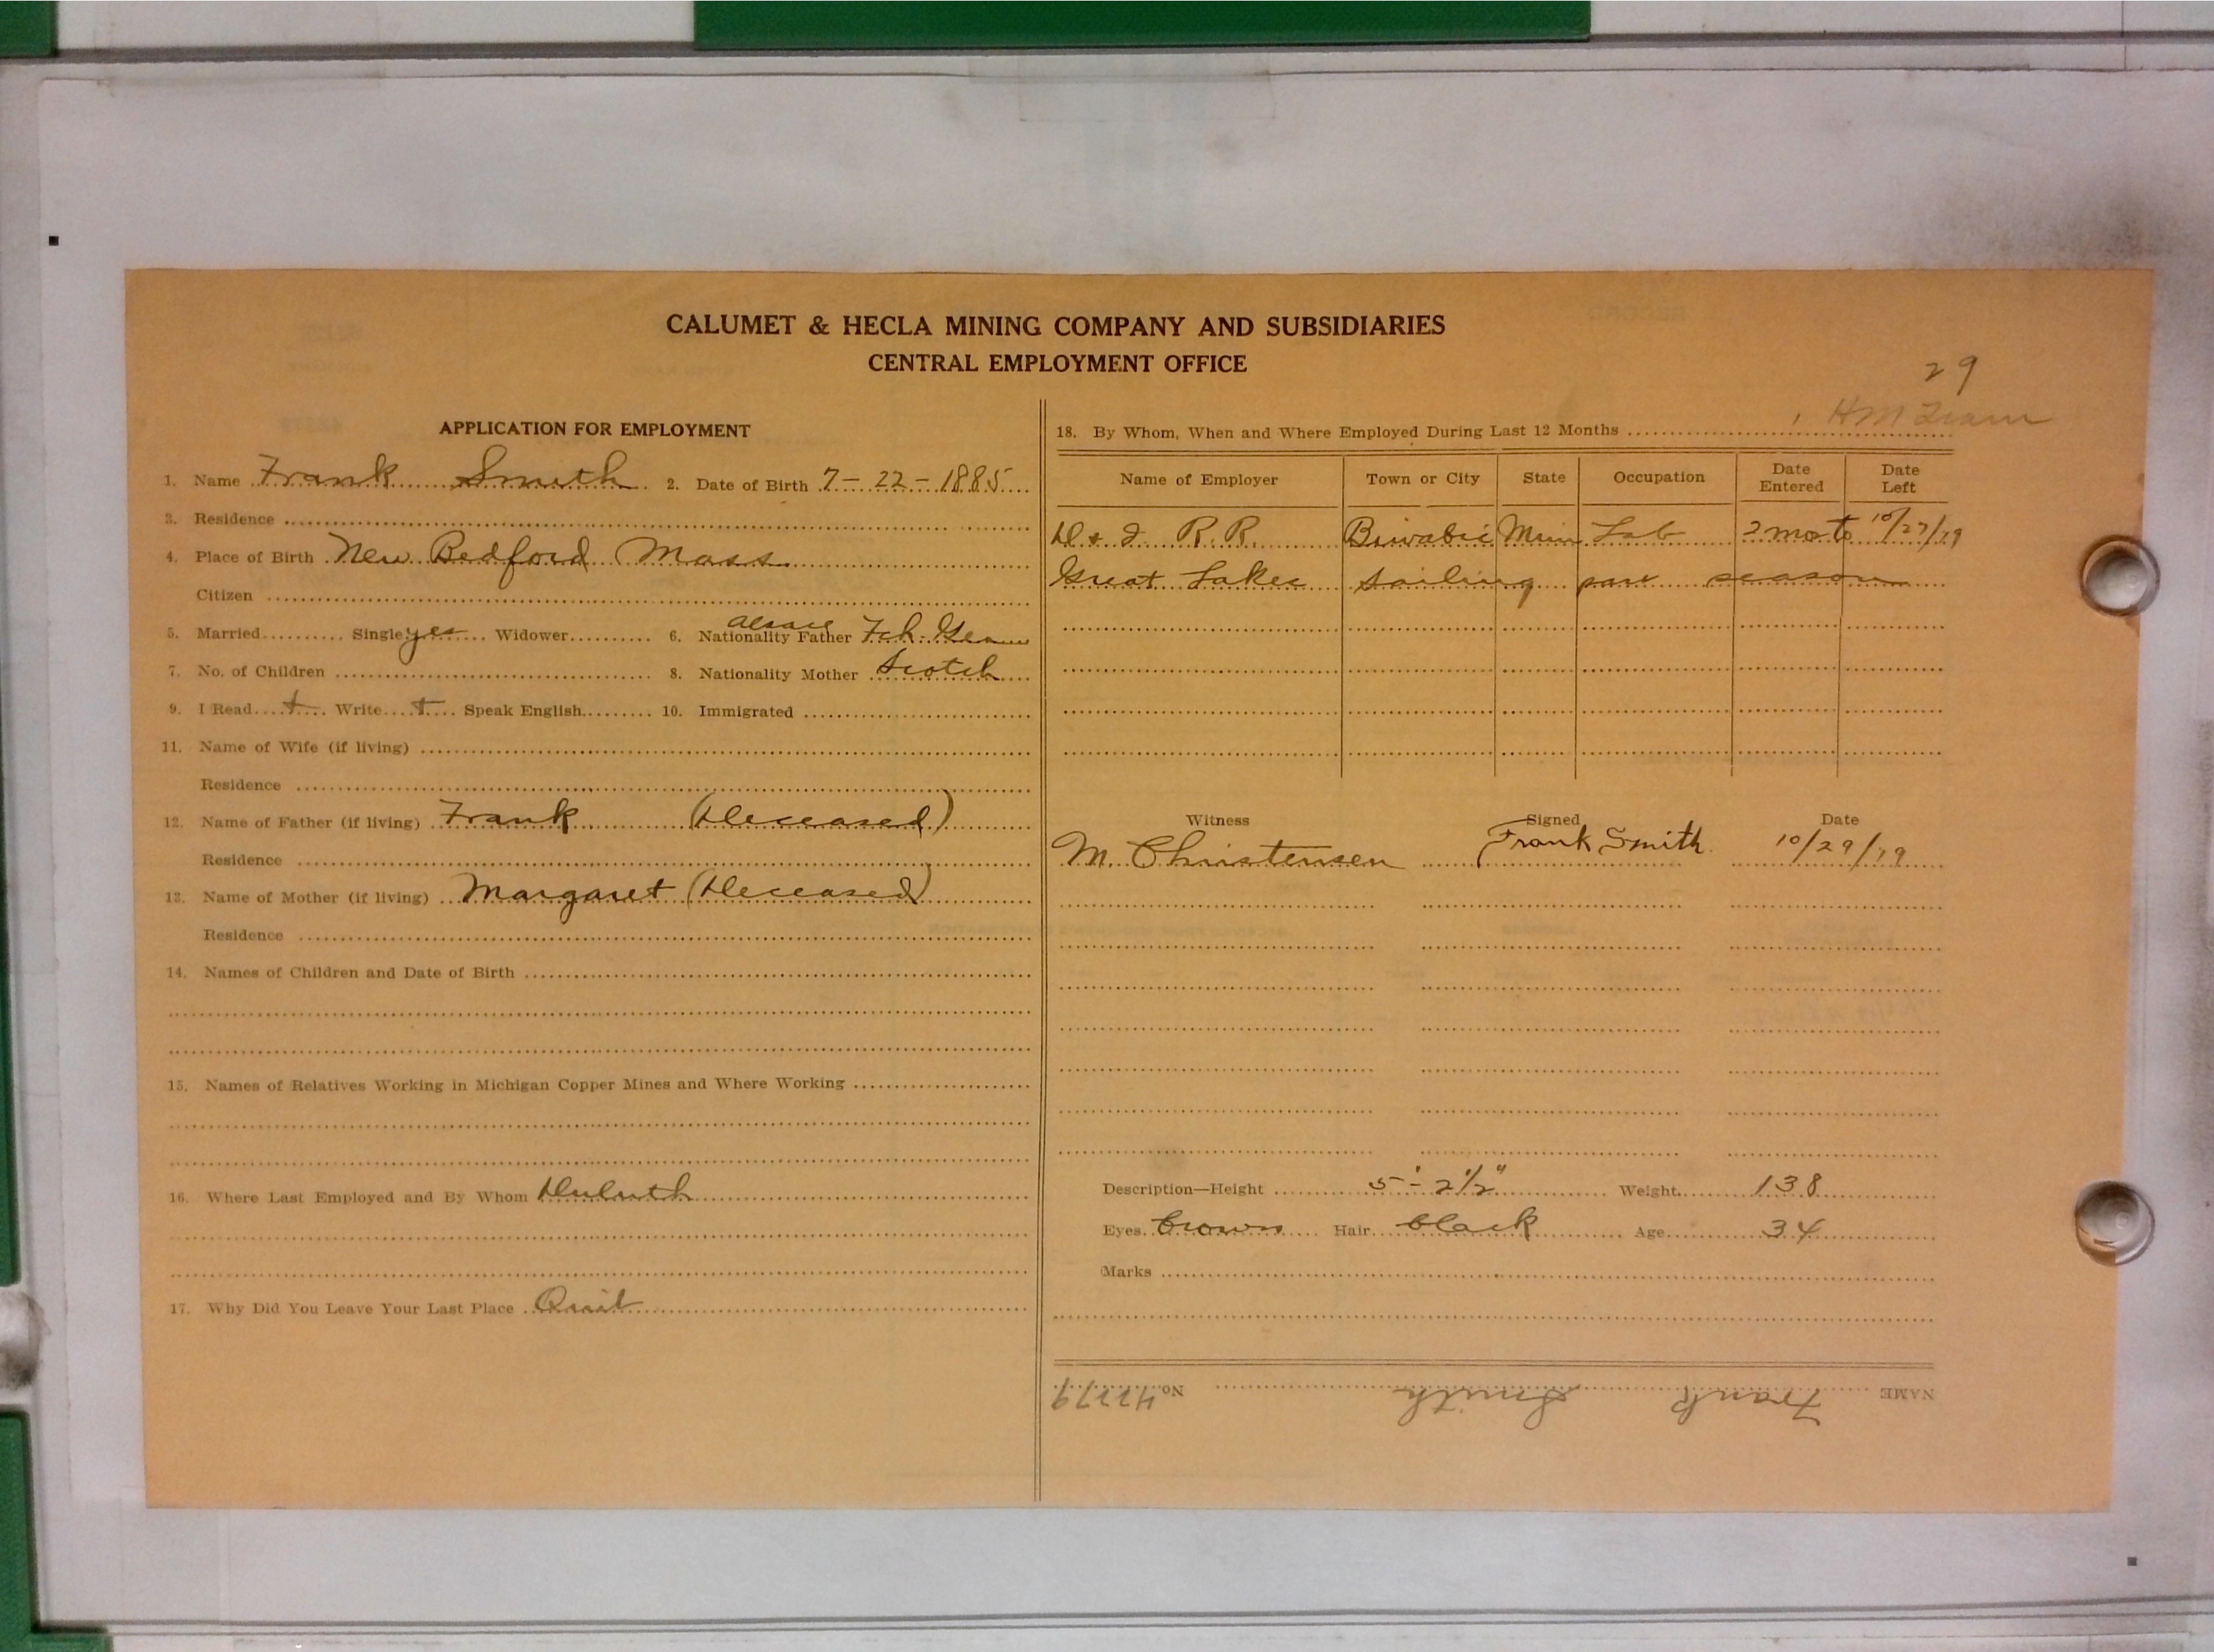 CALUMET & HECLA MINING COMPANY AND SUBSIDIARIES
CENTRAL EMPLOYMENT OFFICE
29
APPLICATION FOR EMPLOYMENT
1. Name Frank Smith 2. Date of Birth 7-22-1885
3. Residence
4. Place of Birth New Bedford Mass
Citizen
5. Married Single yes Widower 6. Nationality Father Alsace Fch.
7. No. of Children 8. Nationality Mother Scotch
9. I Read + Write + Speak English 10. Immigrated
11. Name of Wife (if living)
Residence
12. Name of Father (if living) Frank (Deceased)
Residence
13. Name of Mother (if living) Margaret (Deceased)
Residence
14. Names of Children and Date of Birth
15. Names of Relatives Working in Michigan Copper Mines and Where Working
16. Where Last Employed and By Whom Duluth
17. Why Did You Leave Your Last Place Quit
18. By Whom, When and Where Employed During Last 12 Months HM
Name of Employer Town or City State Occupation Date Entered Date Left
D & I R.R. Biwabic Minn Lab 2 mos to 10/27/19
Great Lakes Sailing past season
Witness Signed Date
M. Christensen Frank Smith 10/29/19
Description—Height 5'-2 1/2" Weight 138
Eyes brown Hair black Age 34
Marks
NAME Frank Smith No. 42279